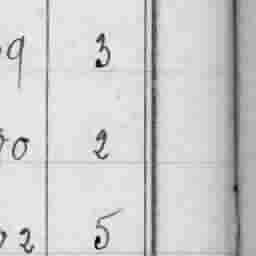 9 3
0 2
2 5